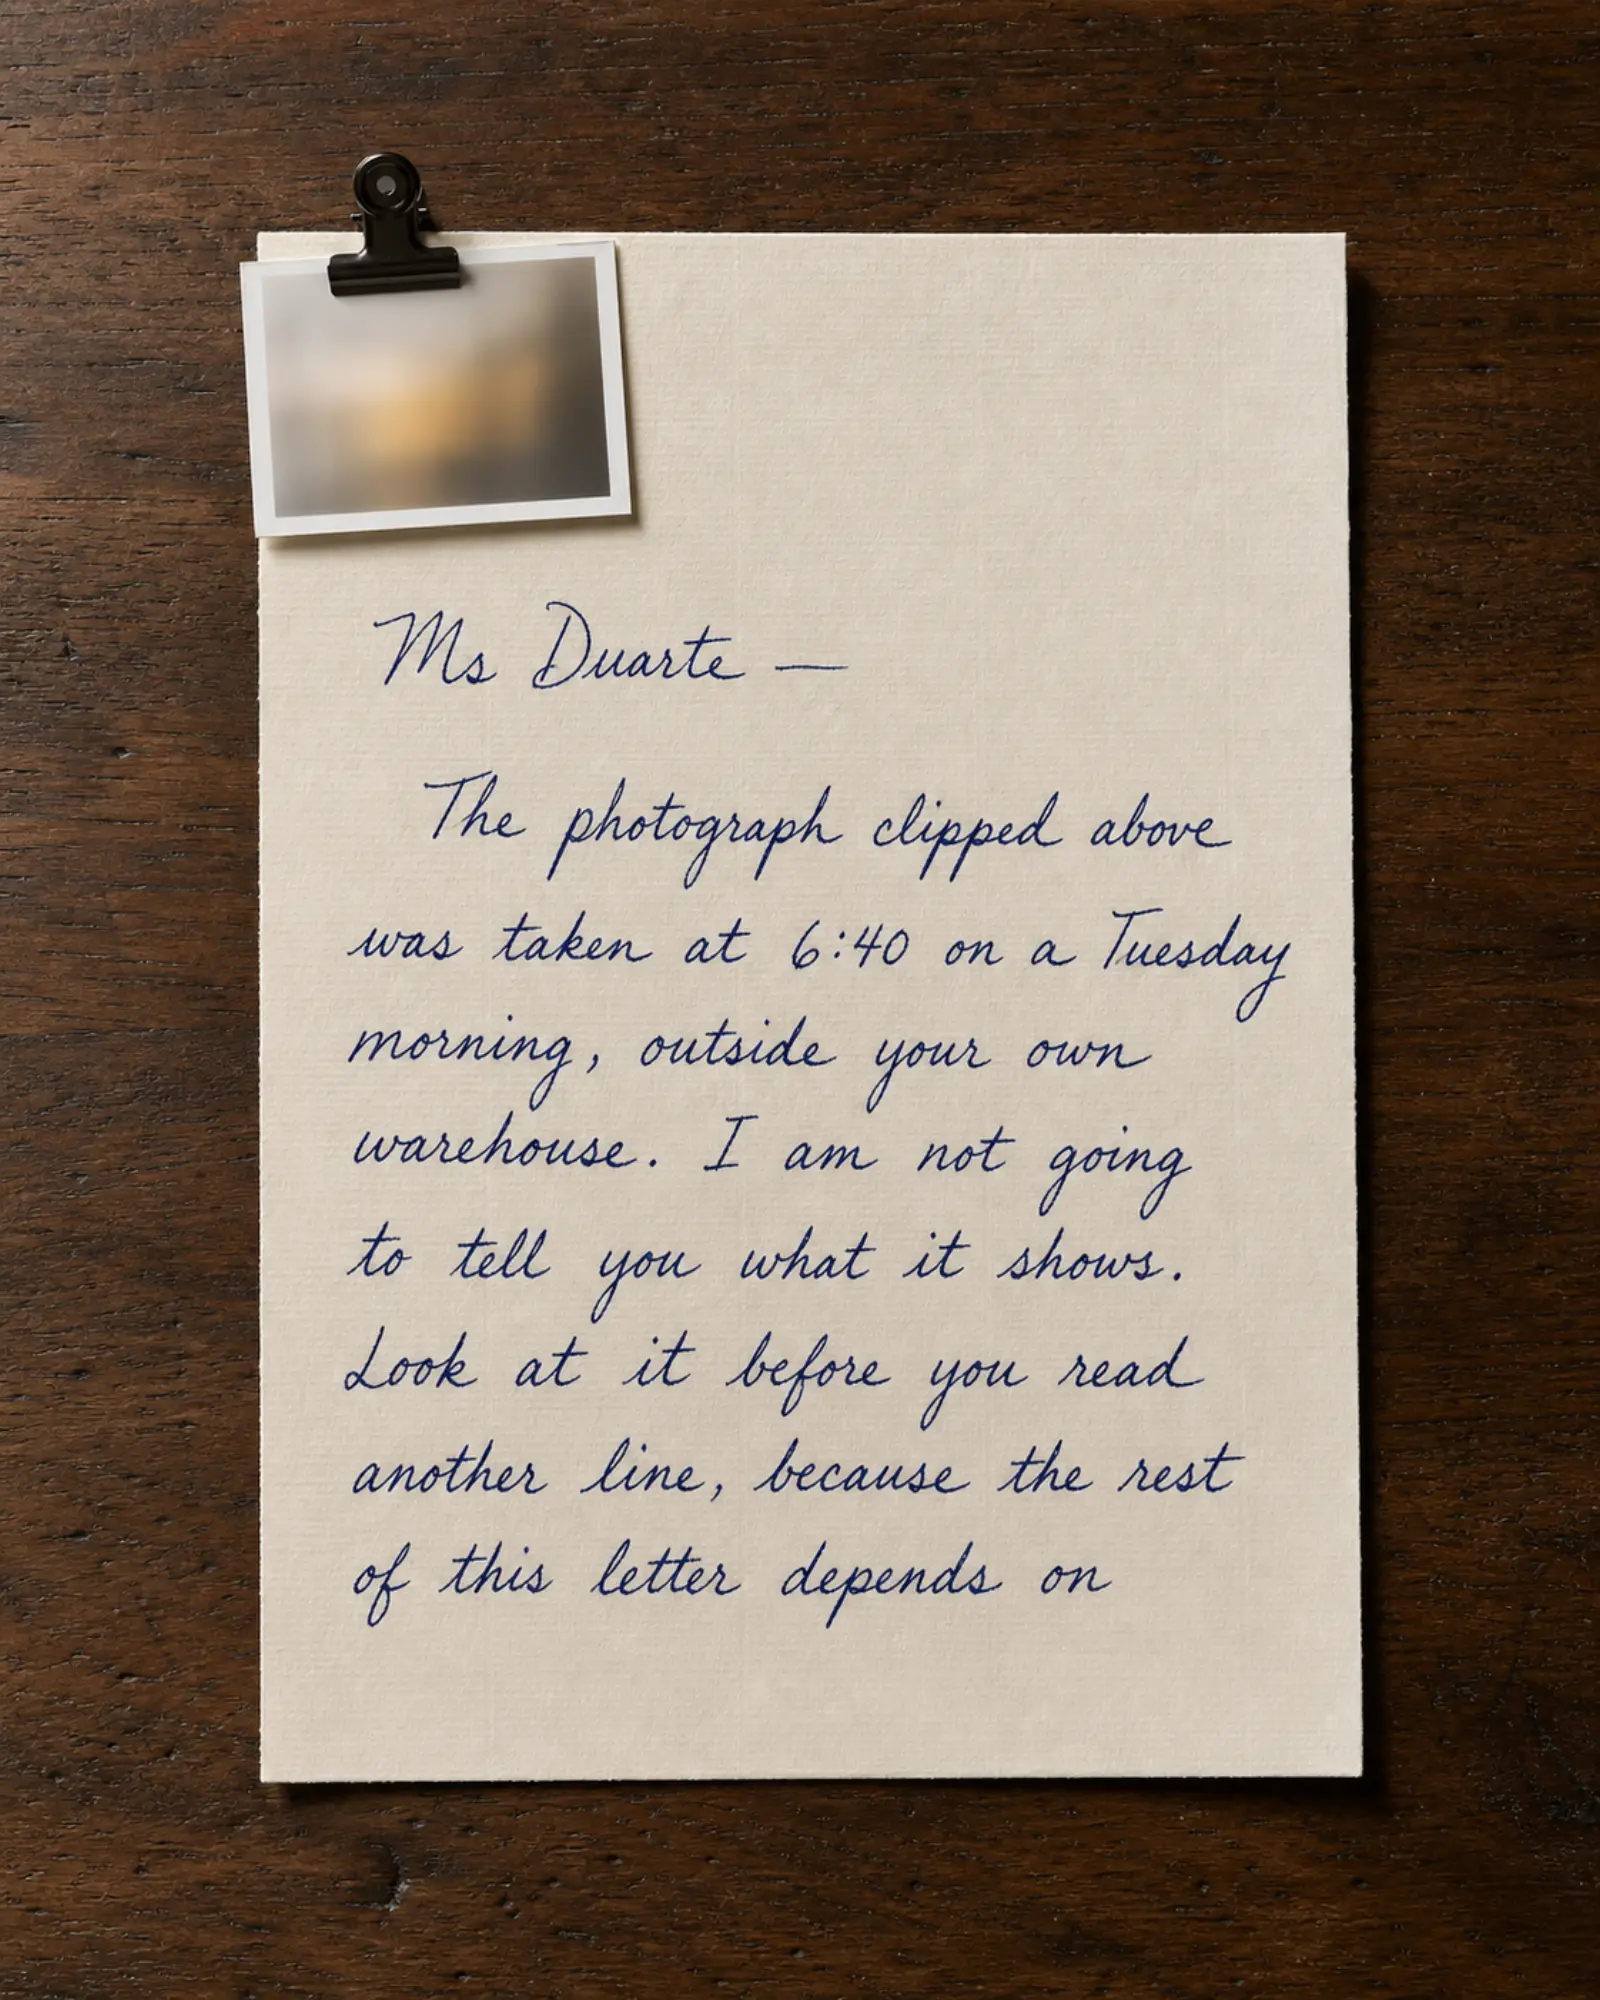 Ms Duarte —
The photograph clipped above
was taken at 6:40 on a Tuesday
morning, outside your own
warehouse. I am not going
to tell you what it shows.
Look at it before you read
another line, because the rest
of this letter depends on